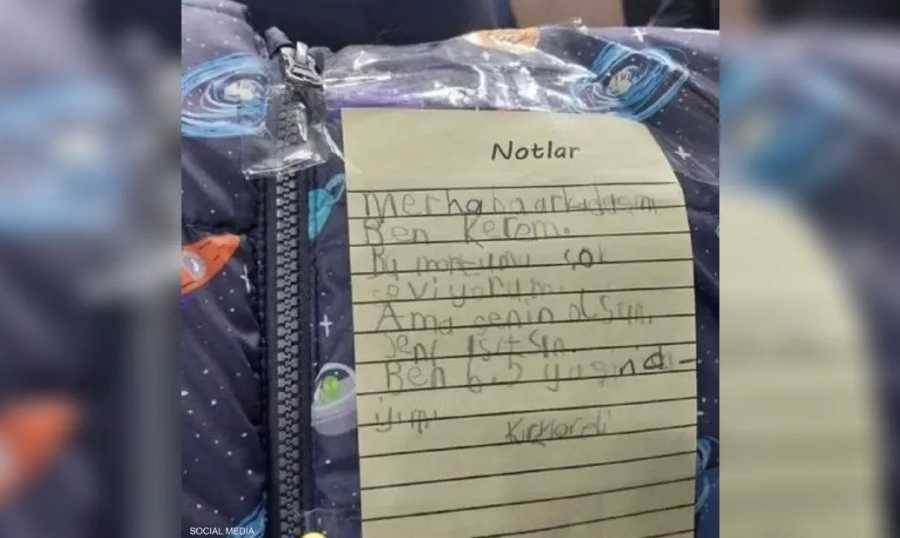 Notlar
Merhaba arkadaşım
Ben Kerem.
Bu montumu çok
seviyorum.
Ama senin olsun.
Seni ısıtsın.
Ben 6.5 yaşında-
yım.
Kırklareli
SOCIAL MEDIA